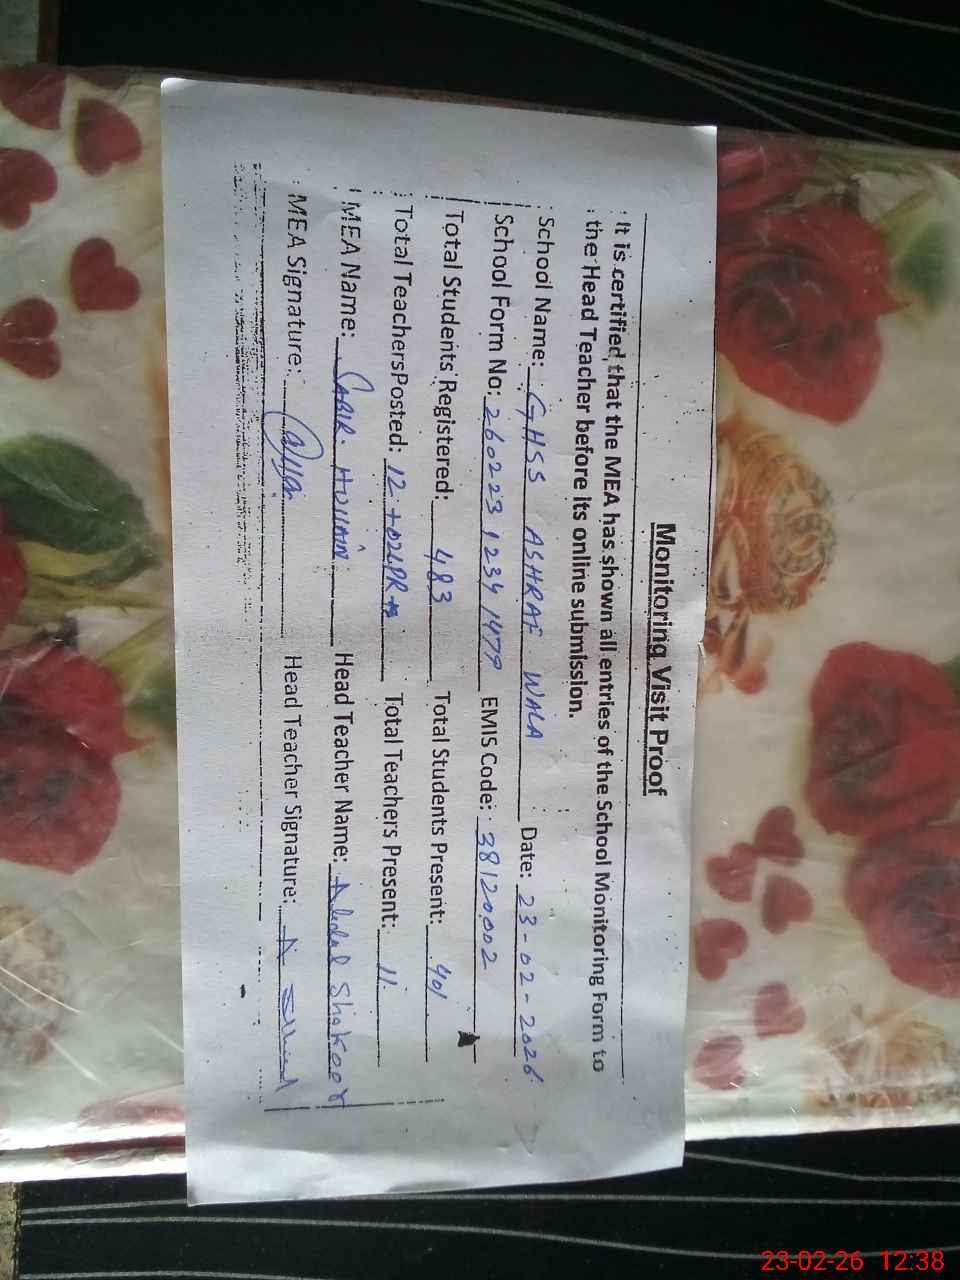 Monitoring Visit Proof
It is certified that the MEA has shown all entries of the School Monitoring Form to
the Head Teacher before its online submission.
School Name: GHSS ASHRAF WALA Date: 23-02-2026
School Form No: 260223 1234 1479 EMIS Code: 38120002
Total Students Registered: 483 Total Students Present: 401
Total TeachersPosted: 12 + Total Teachers Present: 11
MEA Name: SABIR. HUSSAIN Head Teacher Name: Abdul Shakoor
MEA Signature: Head Teacher Signature:
23-02-26 12:38